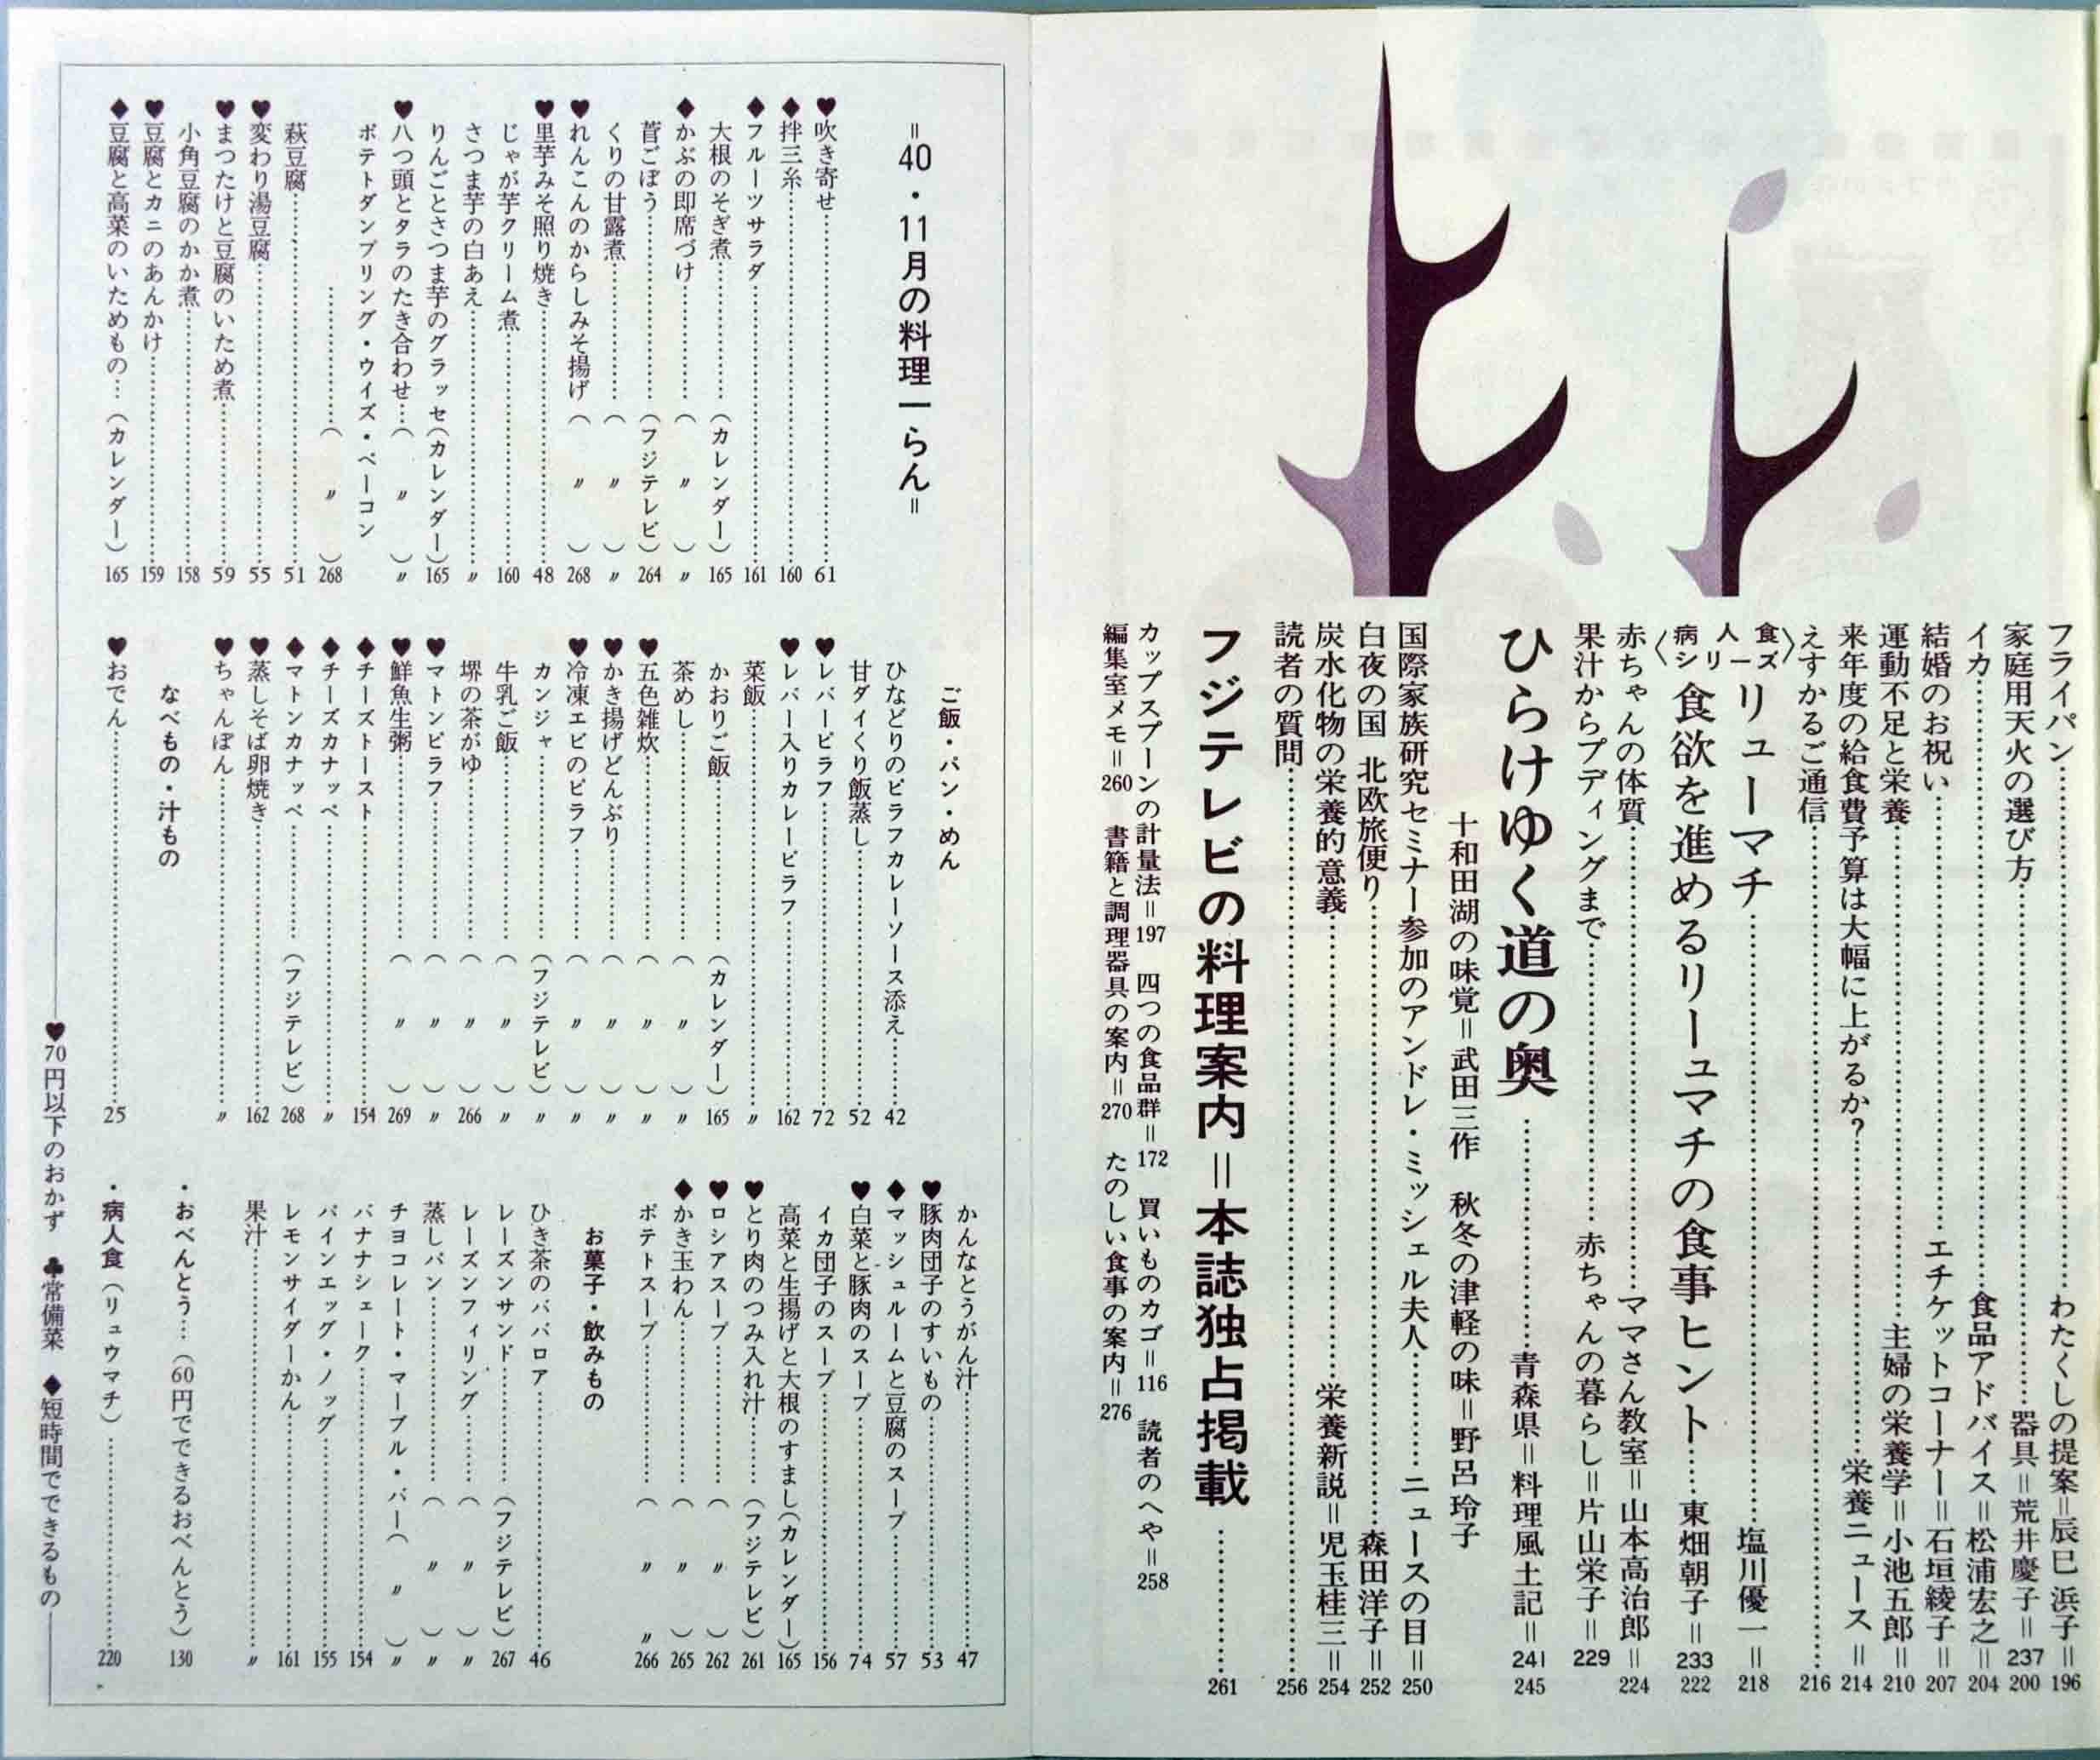 フライパン……わたくしの提案＝辰巳 浜子＝196
家庭用天火の選び方……器具＝荒井慶子＝237 200
イカ……食品アドバイス＝松浦宏之＝204
結婚のお祝い……エチケットコーナー＝石垣綾子＝207
運動不足と栄養……主婦の栄養学＝小池五郎＝210
来年度の給食費予算は大幅に上がるか？……栄養ニュース＝214
えすかるご通信……216
〈病人食シリーズ〉
リューマチ……塩川優一＝218
食欲を進めるリューマチの食事ヒント……東畑朝子＝233 222
赤ちゃんの体質……ママさん教室＝山本高治郎＝224
果汁からプディングまで……赤ちゃんの暮らし＝片山栄子＝229
ひらけゆく道の奥……青森県＝料理風土記＝241 245
十和田湖の味覚＝武田三作　秋冬の津軽の味＝野呂 玲子
国際家族研究セミナー参加のアンドレ・ミッシェル夫人……ニュースの目＝250
白夜の国 北欧旅便り……森田洋子＝252
炭水化物の栄養的意義……栄養新説＝児玉桂三＝254
読者の質問……256
フジテレビの料理案内＝本誌独占掲載……261
カップスプーンの計量法＝197　四つの食品群＝172　買いものカゴ＝116　読者のへや＝258
編集室メモ＝260　書籍と調理器具の案内＝270　たのしい食事の案内＝276
＝40・11月の料理一らん＝
♥吹き寄せ……61
◆拌三糸……160
◆フルーツサラダ……161
大根のそぎ煮……（カレンダー）165
◆かぶの即席づけ……（〃）〃
菅ごぼう……（フジテレビ）264
くりの甘露煮……（〃）〃
♥れんこんのからしみそ揚げ（〃）268
♥里芋みそ照り焼き……48
じゃが芋クリーム煮……160
さつま芋の白あえ……〃
りんごとさつま芋のグラッセ（カレンダー）165
♥八つ頭とタラのたき合わせ…（〃）〃
ポテトダンプリング・ウイズ・ベーコン
……（〃）268
萩豆腐……51
♥変わり湯豆腐……55
♥まつたけと豆腐のいため煮……59
小角豆腐のかか煮……158
♥豆腐とカニのあんかけ……159
◆豆腐と高菜のいためもの…（カレンダー）165
ご飯・パン・めん
ひなどりのピラフカレーソース添え……42
甘ダイくり飯蒸し……52
♥レバーピラフ……72
♥レバー入りカレーピラフ……162
菜飯……〃
かおりご飯……（カレンダー）165
茶めし……（〃）〃
♥五色雑炊……（〃）〃
♥かき揚げどんぶり……（〃）〃
♥冷凍エビのピラフ……（〃）〃
カンジャ……（フジテレビ）〃
牛乳ご飯……（〃）〃
堺の茶がゆ……（〃）266
♥マトンピラフ……（〃）〃
♥鮮魚生粥……（〃）269
◆チーズトースト……154
◆チーズカナッペ……〃
◆マトンカナッペ……（フジテレビ）268
♥蒸しそば卵焼き……162
♥ちゃんぽん……〃
なべもの・汁もの
♥おでん……25
かんなとうがん汁……47
♥豚肉団子のすいもの……53
◆マッシュルームと豆腐のスープ……57
♥白菜と豚肉のスープ……74
イカ団子のスープ……156
高菜と生揚げと大根のすまし（カレンダー）165
♥とり肉のつみ入れ汁……（フジテレビ）261
♥ロシアスープ……（〃）262
◆かき玉わん……（〃）265
ポテトスープ……（〃〃266
お菓子・飲みもの
ひき茶のババロア……46
レーズンサンド……（フジテレビ）267
レーズンフィリング……（〃）〃
蒸しパン……（〃）〃
チョコレート・マーブル・バー（〃）〃
バナナシェーク……154
パインエッグ・ノッグ……155
レモンサイダーかん……161
果汁……〃
・おべんとう…（60円でできるおべんとう）130
・病人食（リュウマチ）……220
♥70円以下のおかず　♣常備菜　◆短時間でできるもの